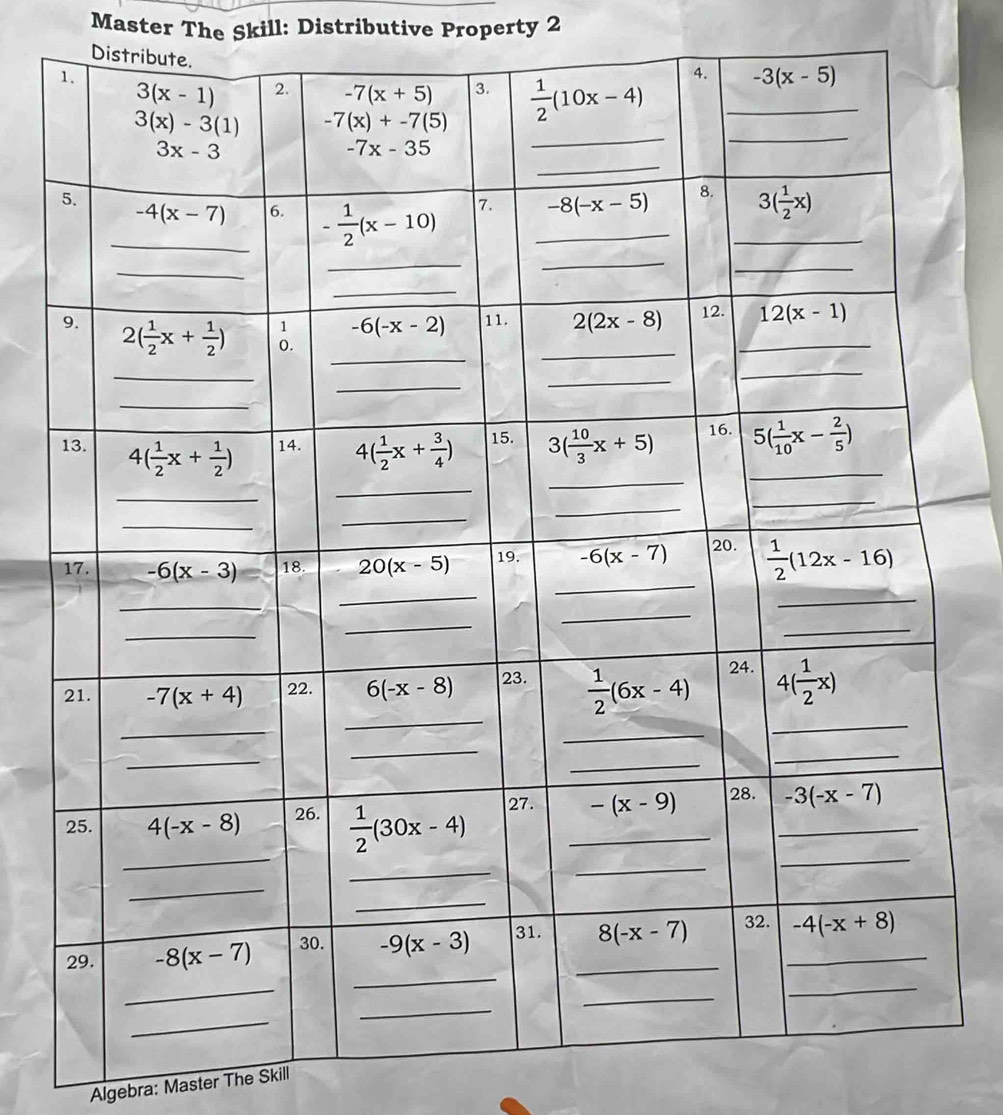 Master The Skill: Distributive Property 2
Distribute.
1. 3(x - 1)
3(x) - 3(1)
3x - 3
2. -7(x + 5)
-7(x) + -7(5)
-7x - 35
3. 1/2(10x - 4)
4. -3(x - 5)
5. -4(x - 7)
6. -1/2(x - 10)
7. -8(-x - 5)
8. 3(1/2x)
9. 2(1/2x + 1/2)
10. -6(-x - 2)
11. 2(2x - 8)
12. 12(x - 1)
13. 4(1/2x + 1/2)
14. 4(1/2x + 3/4)
15. 3(10/3x + 5)
16. 5(1/10x - 2/5)
17. -6(x - 3)
18. 20(x - 5)
19. -6(x - 7)
20. 1/2(12x - 16)
21. -7(x + 4)
22. 6(-x - 8)
23. 1/2(6x - 4)
24. 4(1/2x)
25. 4(-x - 8)
26. 1/2(30x - 4)
27. -(x - 9)
28. -3(-x - 7)
29. -8(x - 7)
30. -9(x - 3)
31. 8(-x - 7)
32. -4(-x + 8)
Algebra: Master The Skill